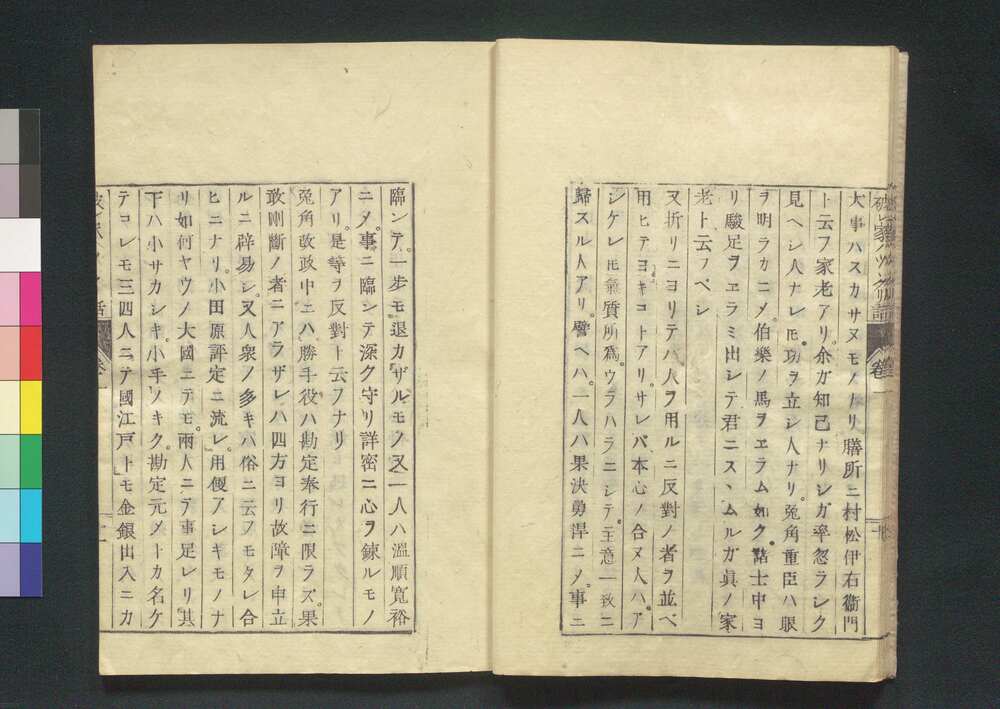 大事ハスカサヌモノナリ膳所ニ村松伊右衞門
ト云フ家老アリ。余ガ知己ナリシガ卒忽ラシク
見ヘシ人ナレ𪜈。功ヲ立シ人ナリ。兎角重臣ハ眼
ヲ明ラカニメ。伯樂ノ馬ヲエラム如ク。諸士中ヨ
リ駿足ヲエラミ出シテ君ニスヽムルガ眞ノ家
老ト云フベシ
又折リニヨリテハ人ヲ用ルニ反對ノ者ヲ並ベ
用ヒテヨキコトアリ。サレバ本心ノ合ヌ人ハ。ア
シケレ𪜈氣質所爲。ウラハラニシテ。主意一致ニ
歸スル人アリ。譬ヘハ。一人ハ果决勇渾ニメ。事ニ
臨ンテ。一歩モ退カザルモノ又一人ハ溫順寬裕
ニメ。事ニ臨ンテ深ク守リ詳密ニ心ヲ錬ルモノ
アリ。是等ヲ反對ト云フナリ
兎角改政中ニハ。勝手役ハ勘定奉行ニ限ラズ。果
敢剛斷ノ者ニアラザレハ四方ヨリ故障ヲ申立
ルニ辟易シ。又人衆ノ多キハ俗ニ云フモタレ合
ヒニナリ。小田原評定ニ流レ。用便アシキモノナ
リ如何ヤウノ大國ニテモ。兩人ニテ事足レリ。其
下ハ小サカシキ。小手ノキク。勘定元メトカ名ケ
テコレモ三四人ニテ國江戸トモ金銀出入ニカ